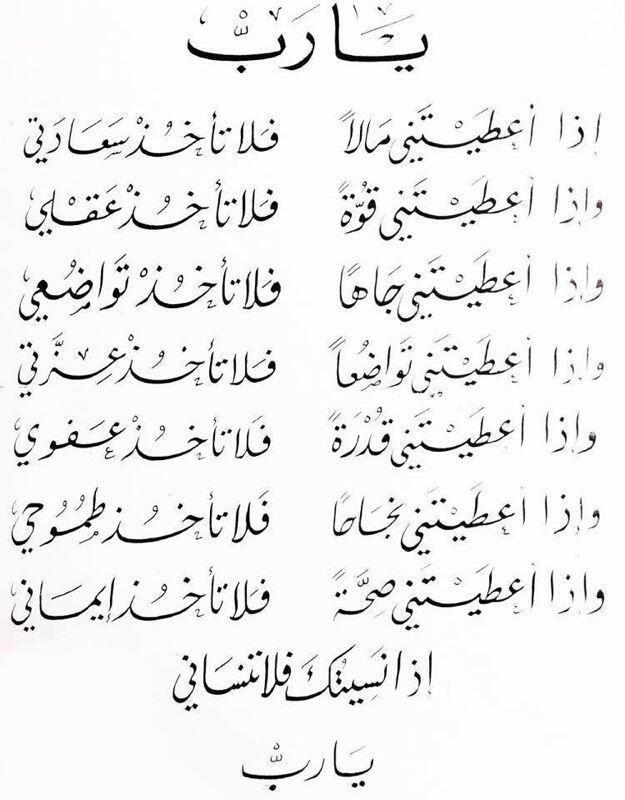 يَا رَبّ
إذا أعطَيْتَني مَالاً فَلا تأخُذْ سَعَادَتي
وإذا أعطَيْتَني قُوّةً فَلا تأخُذْ عَقْلي
وإذا أعطَيْتَني جَاهًا فَلا تأخُذْ تَوَاضُعي
وإذا أعطَيْتَني تَوَاضُعاً فَلا تأخُذْ عِزَّتي
وإذا أعطَيْتَني قُدْرَةً فَلا تأخُذْ عَفوي
وإذا أعطَيْتَني نجَاحًا فَلا تأخُذ طمُوُحي
وإذا أعطَيْتَني صِحَّةً فلا تأخُذ إيمَاني
إذا نَسِيتُكَ فلا تنسَاني
يَا ربّ